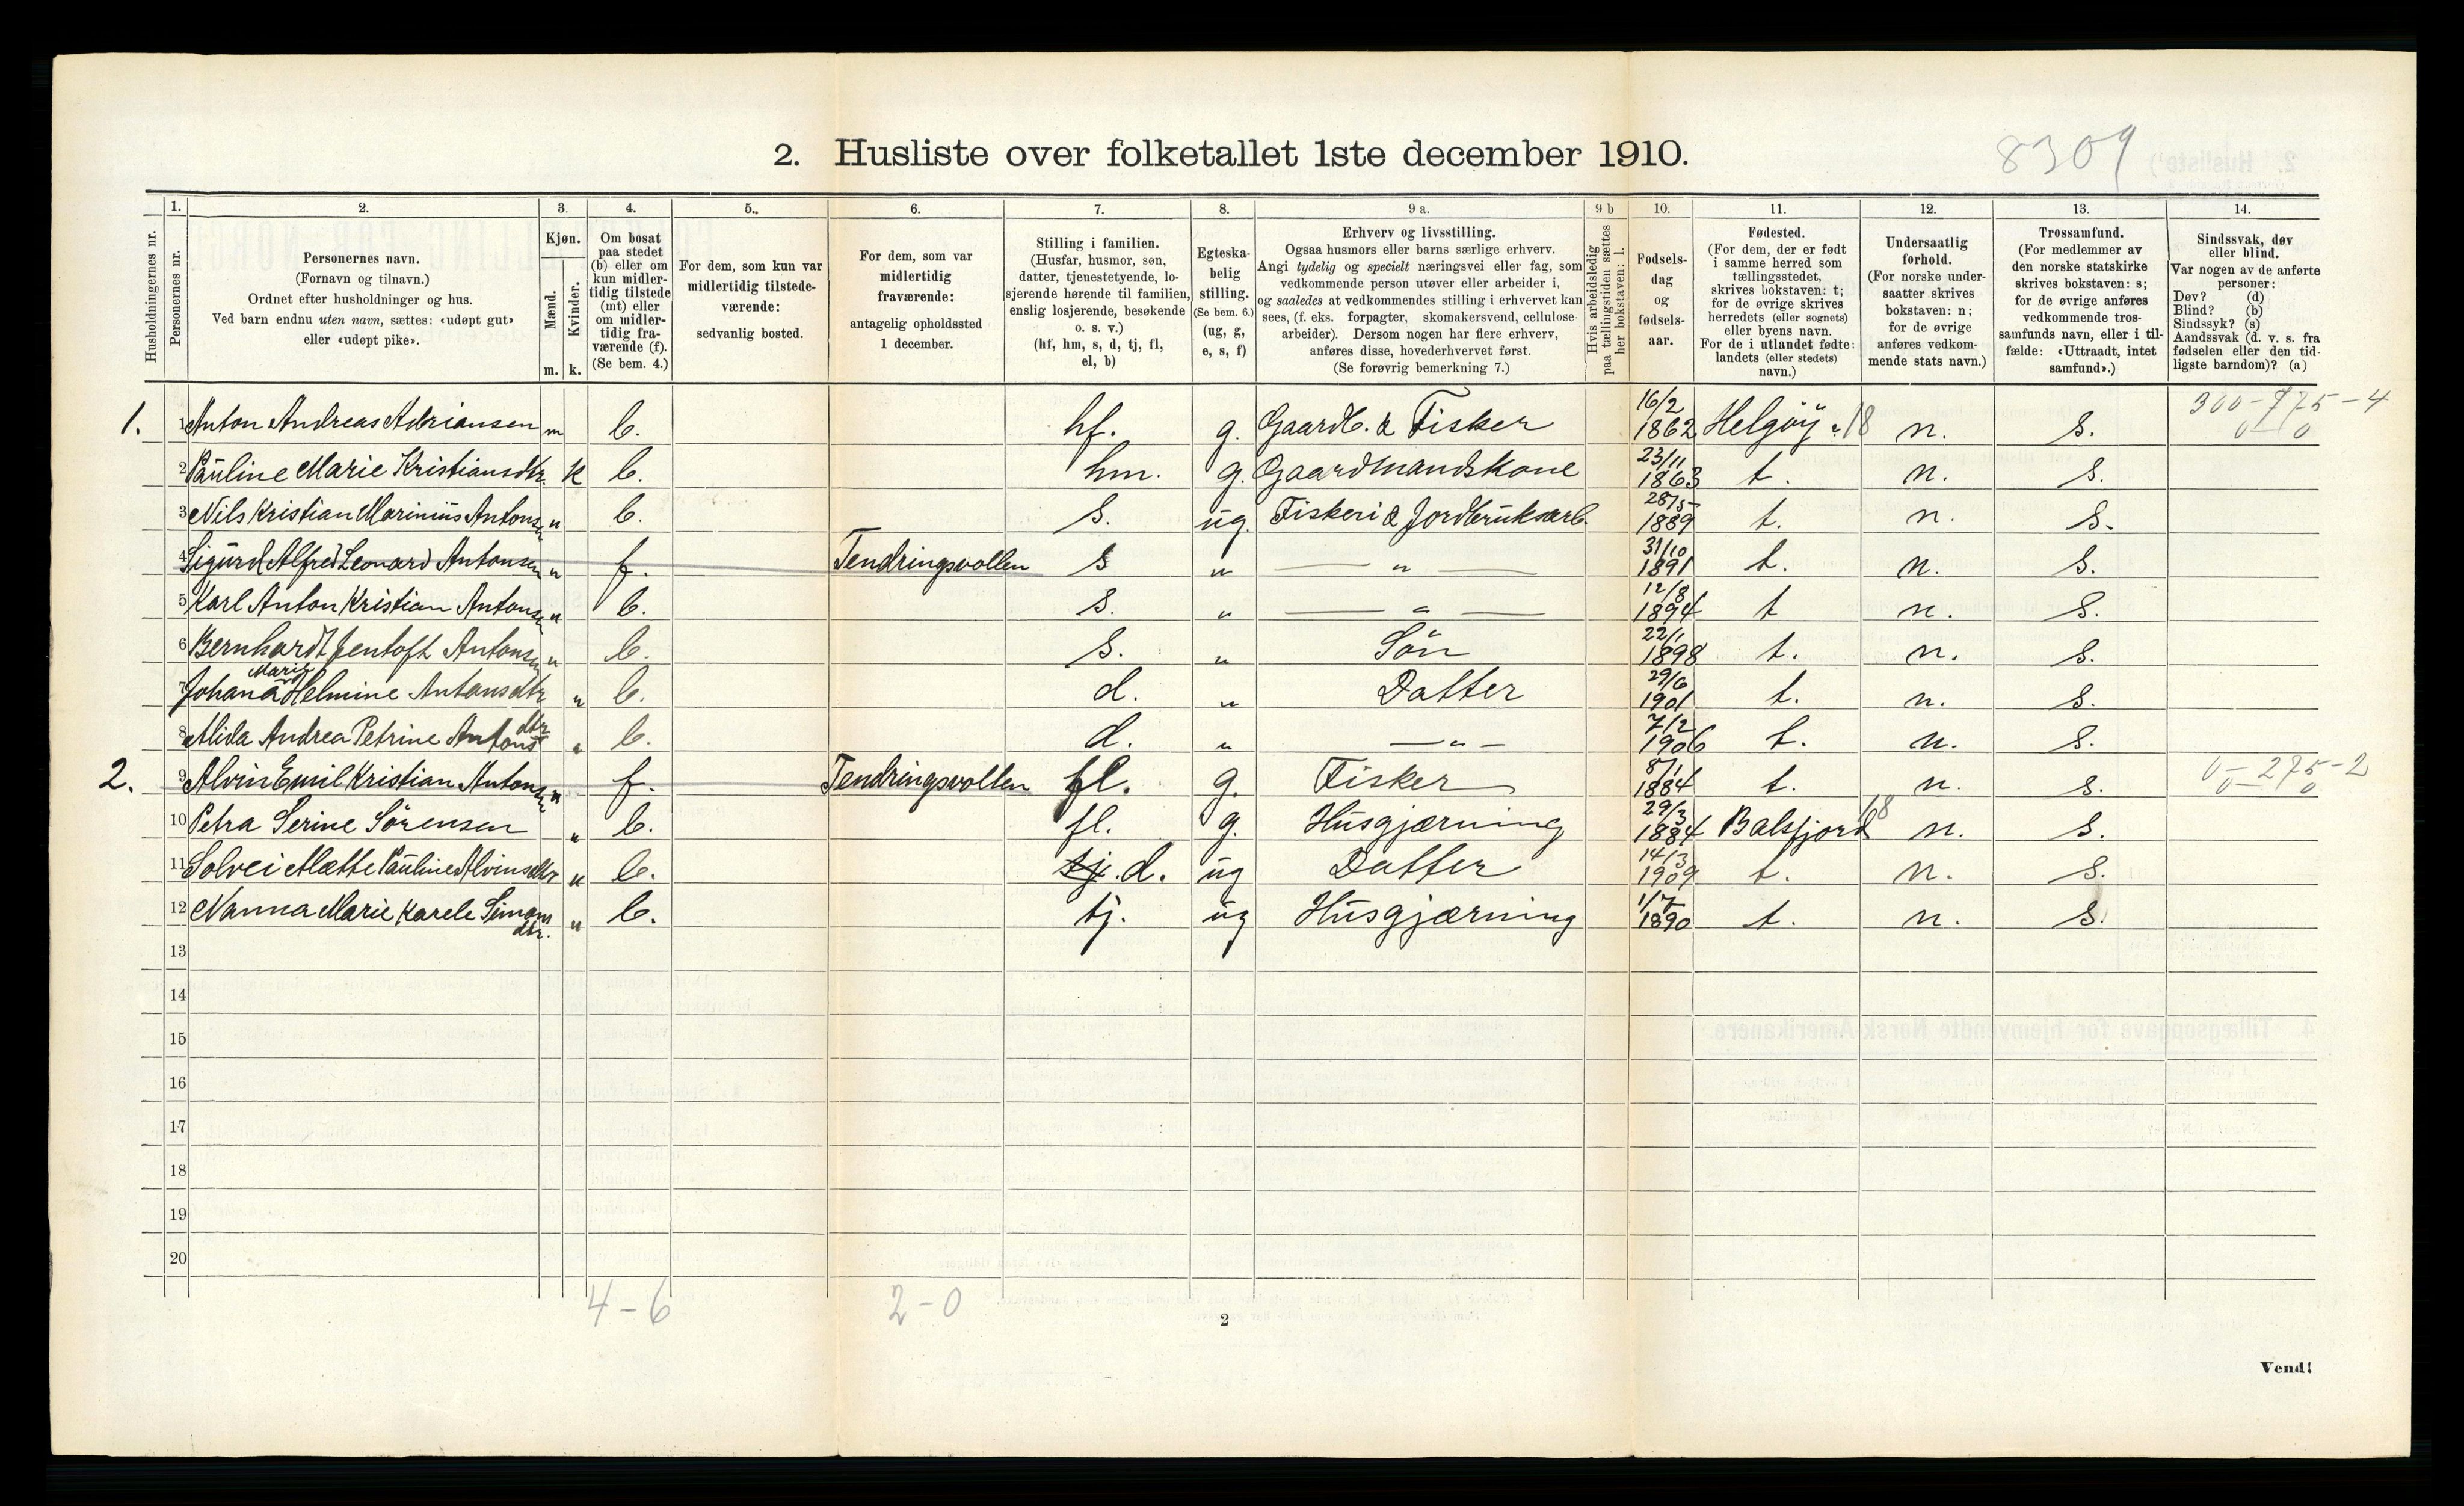 2. Husliste over folketallet 1ste december 1910.
8309
1. 2. 3. 4. 5. 6. 7. 8. 9 a. 9 b 10. 11. 12. 13. 14.
Husholdningernes nr.
Personernes nr.
Personernes navn.
(Fornavn og tilnavn.)
Ordnet efter husholdninger og hus.
Ved barn endnu uten navn, sættes: «udøpt gut»
eller «udøpt pike».
Kjøn.
Mænd.
Kvinder.
m. k.
Om bosat
paa stedet
(b) eller om
kun midler-
tidig tilstede
(mt) eller
om midler-
tidig fra-
værende (f).
(Se bem. 4.)
For dem, som kun var
midlertidig tilstede-
værende:
sedvanlig bosted.
For dem, som var
midlertidig
fraværende:
antagelig opholdssted
1 december.
Stilling i familien.
(Husfar, husmor, søn,
datter, tjenestetyende, lo-
sjerende hørende til familien,
enslig losjerende, besøkende
o. s. v.)
(hf, hm, s, d, tj, fl,
el, b)
Egteska-
belig
stilling.
(Se bem. 6.)
(ug, g,
e, s, f)
Erhverv og livsstilling.
Ogsaa husmors eller barns særlige erhverv.
Angi tydelig og specielt næringsvei eller fag, som
vedkommende person utøver eller arbeider i,
og saaledes at vedkommendes stilling i erhvervet kan
sees, (f. eks. forpagter, skomakersvend, cellulose-
arbeider). Dersom nogen har flere erhverv,
anføres disse, hovederhvervet først.
(Se forøvrig bemerkning 7.)
Hvis arbeidsledig
paa tællingstiden sættes
her bokstaven: l.
Fødsels-
dag
og
fødsels-
aar.
Fødested.
(For dem, der er født
i samme herred som
tællingsstedet,
skrives bokstaven: t;
for de øvrige skrives
herredets (eller sognets)
eller byens navn.
For de i utlandet fødte:
landets (eller stedets)
navn.)
Undersaatlig
forhold.
(For norske under-
saatter skrives
bokstaven: n;
for de øvrige
anføres vedkom-
mende stats navn.)
Trossamfund.
(For medlemmer av
den norske statskirke
skrives bokstaven: s;
for de øvrige anføres
vedkommende tros-
samfunds navn, eller i til-
fælde: «Uttraadt, intet
samfund».)
Sindssvak, døv
eller blind.
Var nogen av de anførte
personer:
Døv? (d)
Blind? (b)
Sindssyk? (s)
Aandssvak (d. v. s. fra
fødselen eller den tid-
ligste barndom)? (a)
1. 1 Anton Andreas Adriansen m b. hf. g. Gaardb. & Fisker 16/2 1862 Helgøy 18 n. s. 300-775-4 0-0
2 Pauline Marie Kristiansdtr. k b. hm. g. Gaardmandskone 23/11 1863 t. n. s.
3 Nils Kristian Marinius Antonsen " b. s. ug. Fiskeri & Jordbruksarb. 28/5 1889 t. n. s.
4 Sigurd Alfred Leonard Antonsen " f. Tendringsvollen s " — " — 31/10 1891 t. n. s.
5 Karl Anton Kristian Antonsen " b. s. " — " — 12/8 1894 t n. s.
6 Bernhardt Jentoft Antonsen " b. s. " Sön 22/1 1898 t. n. s.
7 Johana Marie Helmine Antonsdtr " b. d. " Datter 29/6 1901 t. n. s.
8 Alida Andrea Petrine Antonsdtr " b. d. " — " — 7/2 1906 t. n. s.
2. 9 Alvin Emil Kristian Antonsen " f. Tendringsvollen fl. g. Fisker 8/1 1884 t. n. s. 0-275-2 0-0
10 Petra Serine Sörensen " b. fl. g. Husgjærning 29/3 1884 Balsfjord 18 n. s.
11 Solvei Mætte Pauline Alvinsdtr " b. tj. d. ug Datter 14/3 1909 t. n. s.
12 Nanna Marie Karele Simonsdtr. " b. tj. ug Husgjærning 1/7 1890 t. n. s.
13
14
15
16
17
18
19
20
4-6 2-0
2
Vend!